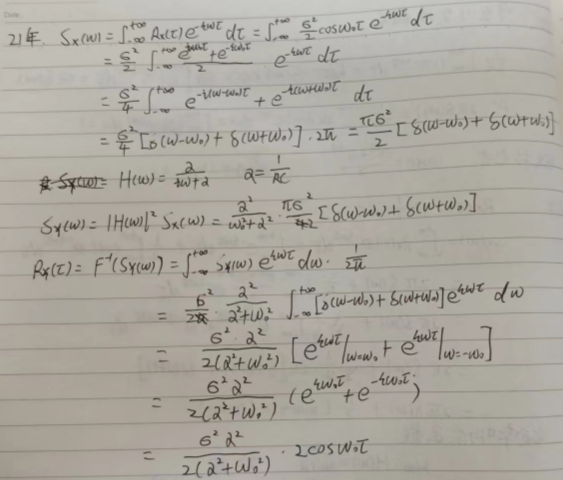 21年. Sx(ω) = ∫_{-∞}^{+∞} Rx(τ) e^{-jωτ} dτ = ∫_{-∞}^{+∞} σ²/2 cosω₀τ e^{-jωτ} dτ
= σ²/2 ∫_{-∞}^{+∞} (e^{jω₀τ} + e^{-jω₀τ})/2 · e^{-jωτ} dτ
= σ²/4 ∫_{-∞}^{+∞} e^{-j(ω-ω₀)τ} + e^{-j(ω+ω₀)τ} dτ
= σ²/4 [δ(ω-ω₀) + δ(ω+ω₀)] · 2π = πσ²/2 [δ(ω-ω₀) + δ(ω+ω₀)]
H(ω) = α/(jω+α) α = 1/RC
Sy(ω) = |H(ω)|² Sx(ω) = α²/(ω₀²+α²) · πσ²/2 [δ(ω-ω₀) + δ(ω+ω₀)]
Ry(τ) = F⁻¹(Sy(ω)) = ∫_{-∞}^{+∞} Sy(ω) e^{jωτ} dω · 1/2π
= σ²/2 α²/(α²+ω₀²) ∫_{-∞}^{+∞} [δ(ω-ω₀) + δ(ω+ω₀)] e^{jωτ} dω
= σ²·α²/2(α²+ω₀²) [e^{jωτ}|_{ω=ω₀} + e^{jωτ}|_{ω=-ω₀}]
= σ²α²/2(α²+ω₀²) (e^{jω₀τ} + e^{-jω₀τ})
= σ²α²/2(α²+ω₀²) · 2cosω₀τ